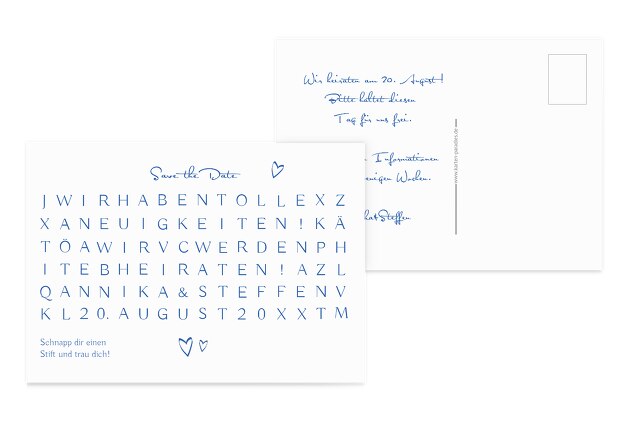 Save the Date
J W I R H A B E N T O L L E X Z
X A N E U I G K E I T E N ! K Ä
T Ö A W I R V C W E R D E N P H
I T E B H E I R A T E N ! A Z L
Q A N N I K A & S T E F F E N V
K L 2 0. A U G U S T 2 0 X X T M
Schnapp dir einen
Stift und trau dich!
Wir heiraten am 20. August!
Bitte haltet diesen
Tag für uns frei.
Informationen
Wochen.
Steffen
www.karten-paradies.de